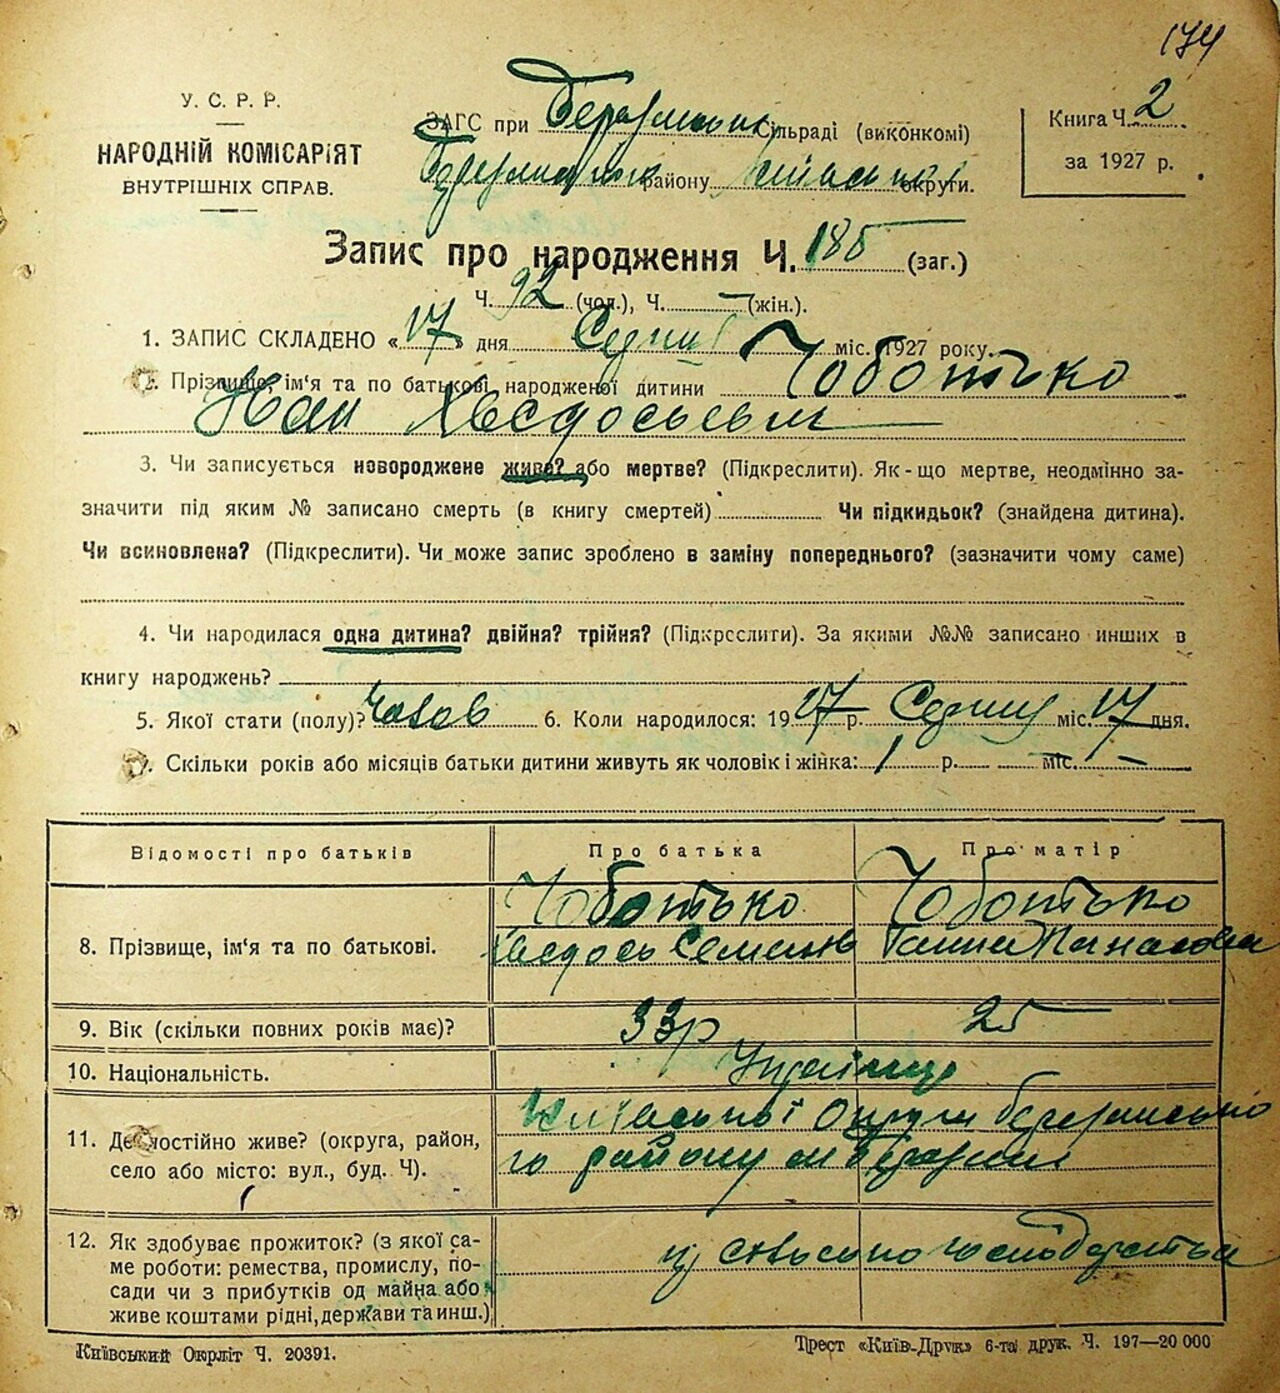 174
У. С. Р. Р.
НАРОДНІЙ КОМІСАРІЯТ
ВНУТРІШНІХ СПРАВ.
ЗАГС при Сільраді (виконкомі)
району округи.
Книга Ч. 2
за 1927 р.
Запис про народження Ч. 185 (заг.)
Ч. 92 (чол.), Ч. — (жін.).
1. ЗАПИС СКЛАДЕНО « 17 » дня Серпня міс. 1927 року.
2. Прізвище, ім'я та по батькові народженої дитини Чоботько
Иван Хведосьевич
3. Чи записується новороджене живе? або мертве? (Підкреслити). Як-що мертве, неодмінно за-
значити під яким № записано смерть (в книгу смертей) Чи підкидьок? (знайдена дитина).
Чи всиновлена? (Підкреслити). Чи може запис зроблено в заміну попереднього? (зазначити чому саме)
4. Чи народилася одна дитина? двійня? трійня? (Підкреслити). За якими №№ записано инших в
книгу народжень?
5. Якої стати (полу)? Чолов 6. Коли народилося: 1927 р. Серпня міс. 17 дня.
7. Скільки років або місяців батьки дитини живуть як чоловік і жінка: 1 р. — міс. —
Відомості про батьків Про батька Про матір
8. Прізвище, ім'я та по батькові. Чоботько Чоботько
Хведось Семенов Ганна Панасовна
9. Вік (скільки повних років має)? 33р 25
10. Національність. Українці
11. Де постійно живе? (округа, район,
село або місто: вул., буд. Ч). Округи
го району м
12. Як здобуває прожиток? (з якої са-
ме роботи: ремества, промислу, по-
сади чи з прибутків од майна або
живе коштами рідні, держави та инш.)
із сільського господарства
Київський Окрліт Ч. 20391.
Трест «Київ-Друк» 6-та друк. Ч. 197—20 000